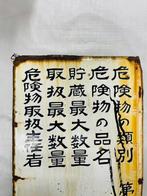 危険物の類別 第
危険物の品名
貯蔵最大数量
取扱最大数量
危険物取扱主任者